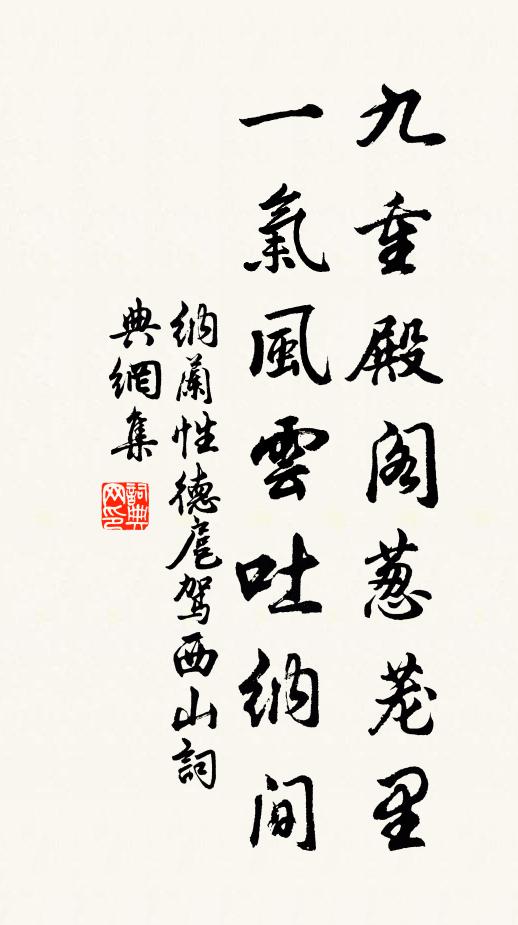 九重殿阁葱茏里
一氣風雲吐納間
納蘭性德扈驾西山詞
典網集
詞典網印